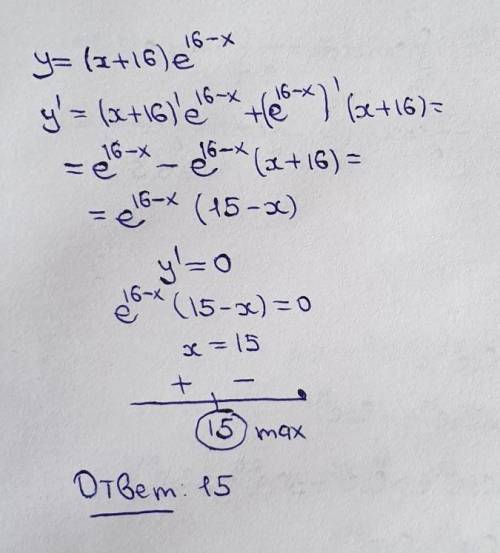 y = (x+16)e^{16-x}
y' = (x+16)'e^{16-x} + (e^{16-x})'(x+16) =
= e^{16-x} - e^{16-x}(x+16) =
= e^{16-x} (15-x)
y' = 0
e^{16-x} (15-x) = 0
x = 15
+ -
15 max
Ответ: 15